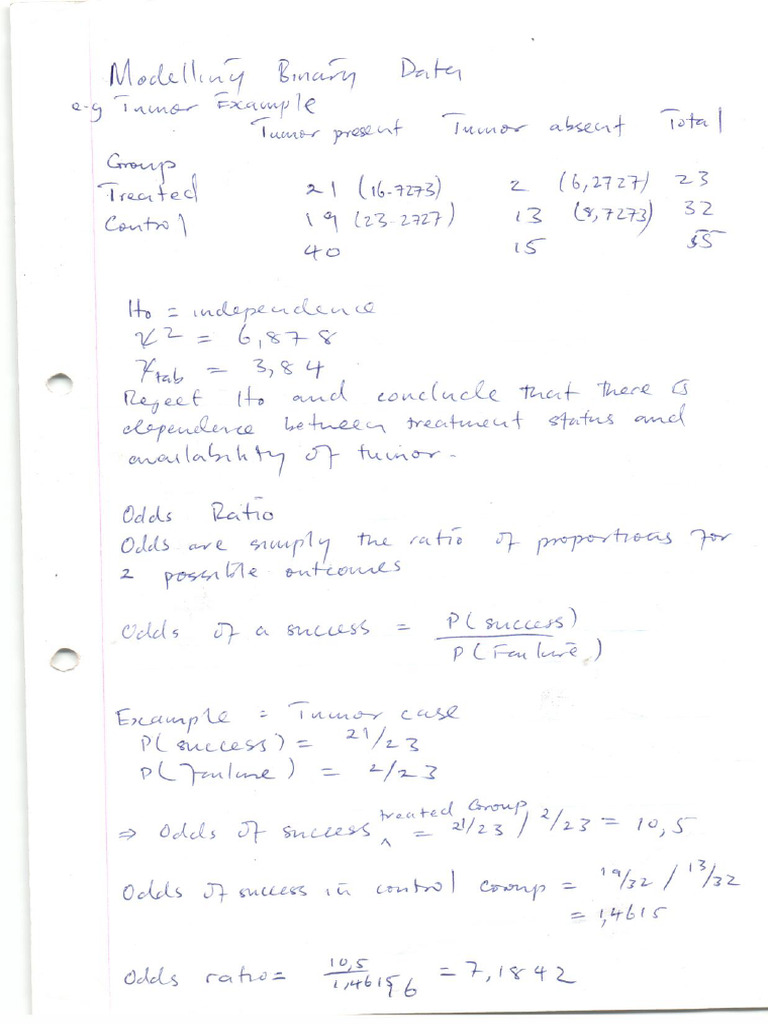 Modelling Binary Data
e-g Tumor Example
Tumor present Tumor absent Total
Group
Treated 21 (16-7273) 2 (6,2727) 23
Control 19 (23-2727) 13 (8,7273) 32
40 15 55
Ho = independence
χ² = 6,878
χtab = 3,84
Reject Ho and conclude that there is
dependence between treatment status and
availability of tumor.
Odds Ratio
Odds are simply the ratio of proportions for
2 possible outcomes
Odds of a success = P(success) / P(Failure)
Example = Tumor case
P(success) = 21/23
P(Failure) = 2/23
⇒ Odds of success treated Group = 21/23 / 2/23 = 10,5
Odds of success in control Group = 19/32 / 13/32
= 1,4615
Odds ratio = 10,5 / 1,46156 = 7,1842